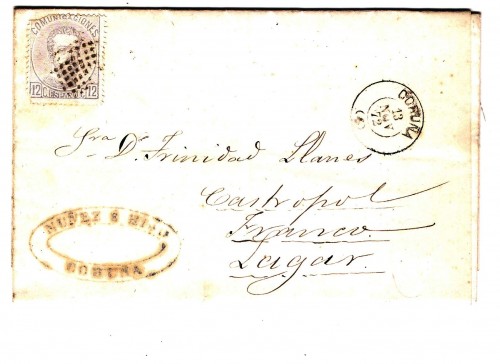 COMUNICACIONES
12 CS. ESPAÑA 12
CORUÑA
13
NOV
72
Sra. Da. Trinidad Llanes
Castropol
Franco
Lagar.
NUÑEZ É HIJO
CORUÑA